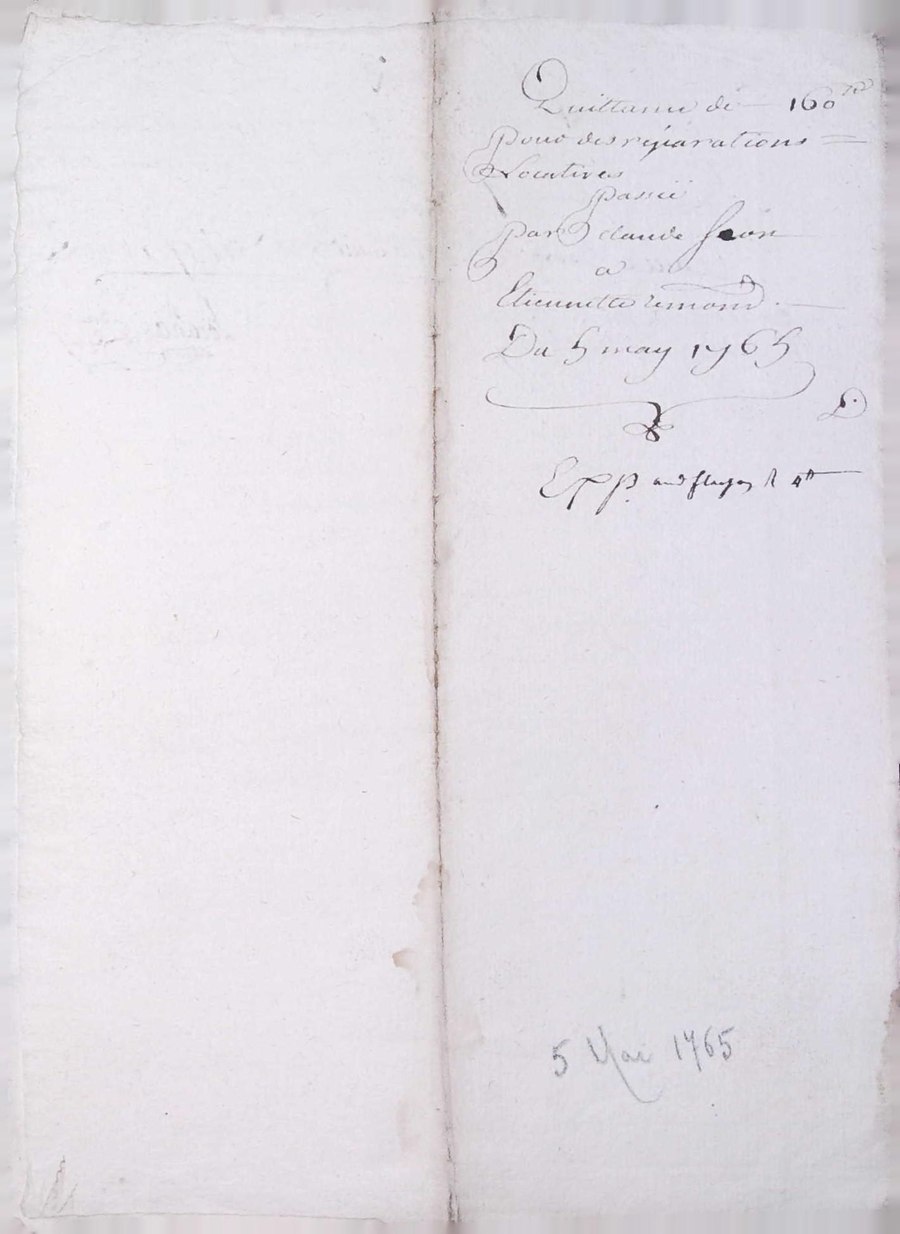 Quittance de 160
pour des réparations
Locatives
passée
par claude
a
Etiennette remond.
Du 5 may 1765
D.
Exp.
5 Mai 1765